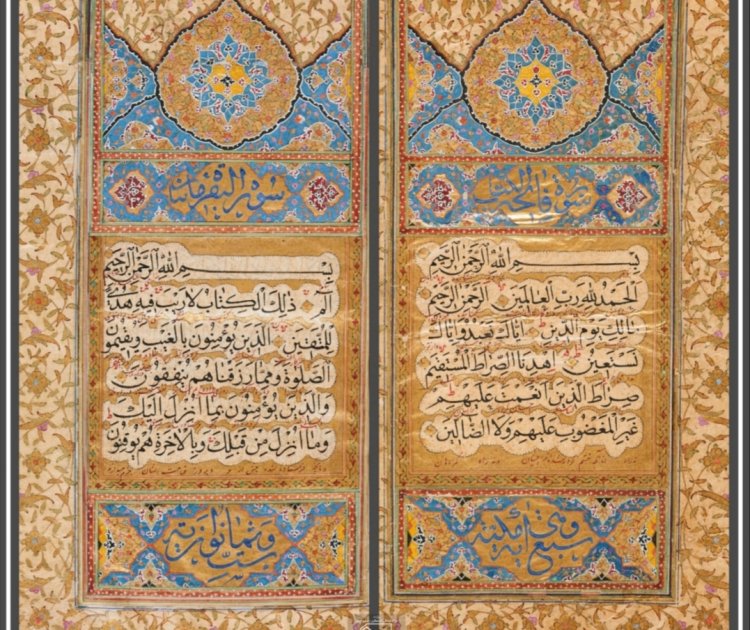 سورة فاتحة الكتاب
بِسْمِ اللهِ الرَّحْمٰنِ الرَّحِيمِ
اَلْحَمْدُ لِلّهِ رَبِّ الْعَالَمِينَ الرَّحْمٰنِ الرَّحِيمِ
مَالِكِ يَوْمِ الدِّينِ اِيَّاكَ نَعْبُدُ وَاِيَّاكَ
نَسْتَعِينُ اِهْدِنَا الصِّرَاطَ الْمُسْتَقِيمَ
صِرَاطَ الَّذِينَ اَنْعَمْتَ عَلَيْهِمْ
غَيْرِ الْمَغْضُوبِ عَلَيْهِمْ وَلَا الضَّالِّينَ
وهي سبع اية
سورة البقرة مائتان
بِسْمِ اللهِ الرَّحْمٰنِ الرَّحِيمِ
الٓمٓ ذٰلِكَ الْكِتَابُ لَا رَيْبَ فِيهِ هُدًى
لِلْمُتَّقِينَ الَّذِينَ يُؤْمِنُونَ بِالْغَيْبِ وَيُقِيمُونَ
الصَّلٰوةَ وَمِمَّا رَزَقْنَاهُمْ يُنْفِقُونَ
وَالَّذِينَ يُؤْمِنُونَ بِمَا اُنْزِلَ اِلَيْكَ
وَمَا اُنْزِلَ مِنْ قَبْلِكَ وَبِالْاٰخِرَةِ هُمْ يُوقِنُونَ
وست وثمانون اية